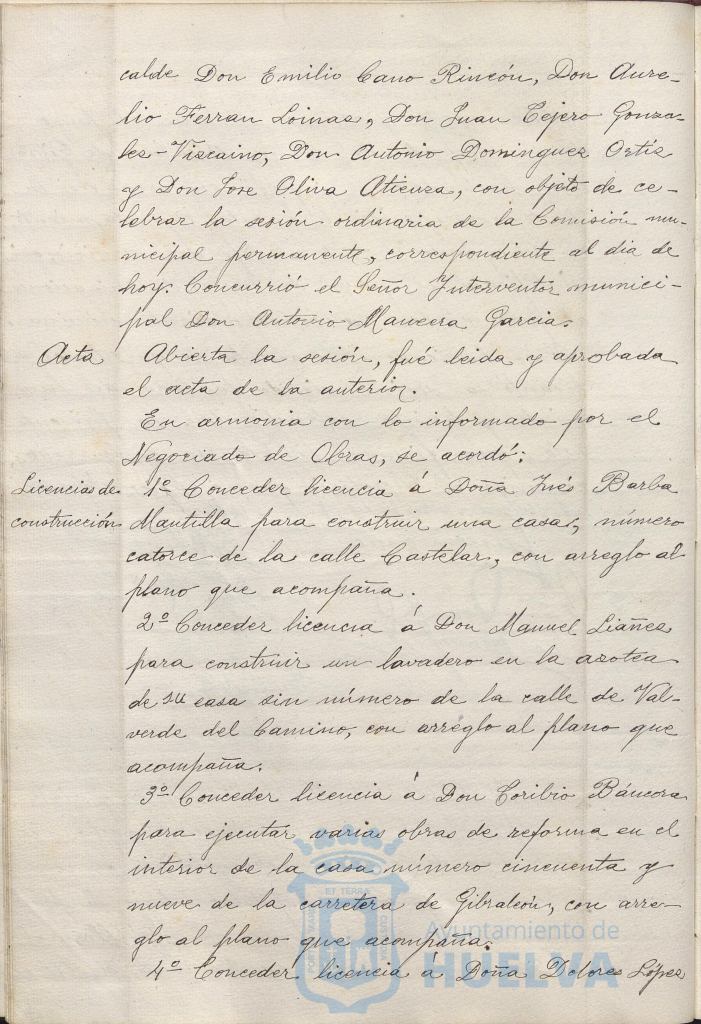 calde Don Emilio Cano Rincón, Don Aure-
lio Ferran Loinas, Don Juan Tejero Gonza-
les-Viscaino, Don Antonio Dominguez Ortiz
y Don Jose Oliva Atienza, con objeto de ce-
lebrar la sesión ordinaria de la Comisión mu-
nicipal permanente, correspondiente al dia de
hoy. Concurrió el Señor Interventor munici-
pal Don Antonio Mancera Garcia.
Acta Abierta la sesión, fué leida y aprobada
el acta de la anterior.
En armonia con lo informado por el
Negociado de Obras, se acordó:
Licencias de 1º Conceder licencia á Doña Inés Barba
construcción Mantilla para construir una casa, número
catorce de la calle Castelar, con arreglo al
plano que acompaña.
2º Conceder licencia á Don Manuel Liañez
para construir un lavadero en la azotea
de su casa sin número de la calle de Val-
verde del Camino, con arreglo al plano que
acompaña.
3º Conceder licencia á Don Toribio Báncora
para ejecutar varias obras de reforma en el
interior de la casa número cincuenta y
nueve de la carretera de Gibraleón, con arre-
glo al plano que acompaña.
4º Conceder licencia á Doña Dolores López
Ayuntamiento de
HUELVA